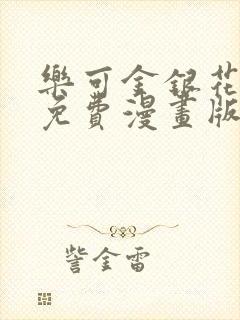 樂可金銀花
免費漫畫版
訾金雷